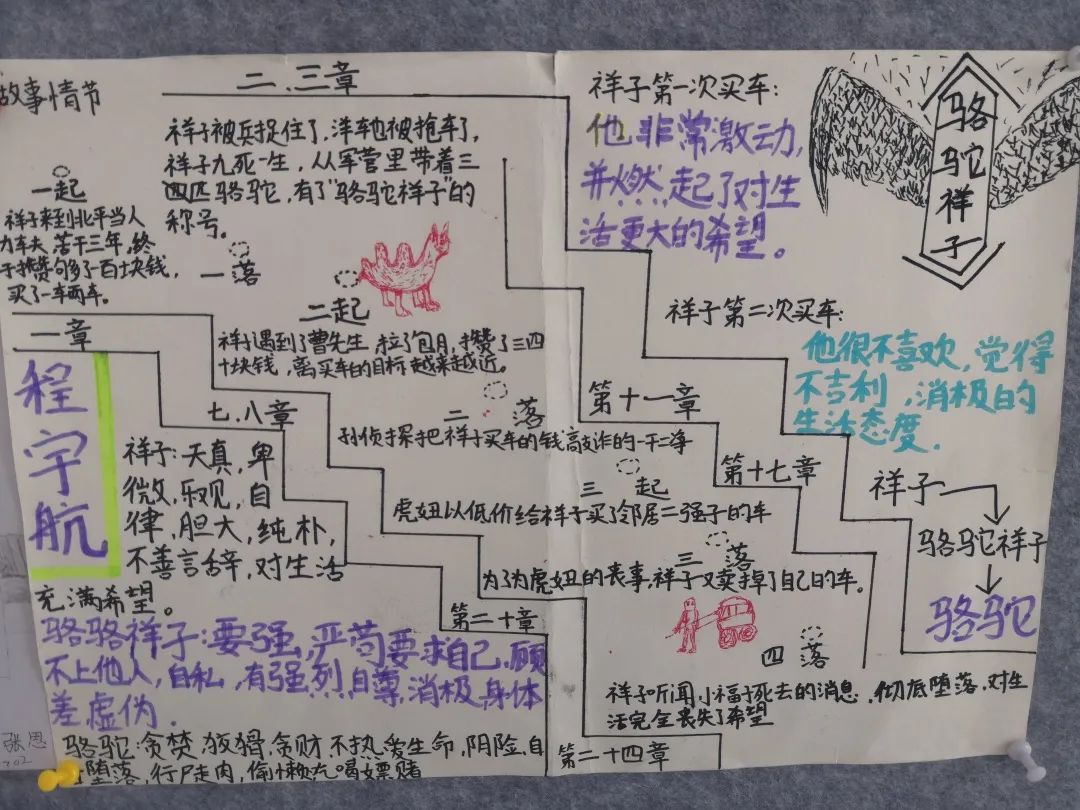 故事情节
二、三章
祥子被兵捉住了，洋车也被抢车了，
祥子九死一生，从军营里带着三
四匹骆驼，有了"骆驼祥子"的
称号。
一起
祥子来到北平当人
力车夫，苦干三年，终
于攒够了一百块钱，
买了一车两车。
一落
二起
祥子遇到了曹先生，拉了包月，攒了三四
十块钱，离买车的目标越来越近。
一章
七、八章
二落
孙侦探把祥子买车的钱敲诈的一干二净
第十一章
三起
虎妞以低价给祥子买了邻居二强子的车
第十七章
三落
为了为虎妞的丧事，祥子又卖掉了自己的车。
第二十章
四落
祥子听闻小福子死去的消息，彻底堕落，对生
活完全丧失了希望
第二十四章
程宇航
祥子：天真，卑
微，乐观，自
律，胆大，纯朴，
不善言辞，对生活
充满希望。
骆骆祥子：要强，严苟要求自己，顾
不上他人，自私，有强烈自尊，消极，身体
差，虚伪．
骆驼：贪婪，狡猾，贪财，不热爱生命，阴险，自
堕落，行尸走肉，偷懒，吃喝嫖赌
祥子第一次买车：
他非常激动，
并燃起了对生
活更大的希望。
骆驼祥子
祥子第二次买车：
他很不喜欢，觉得
不吉利，消极的
生活态度．
祥子
骆驼祥子
骆驼
张恩